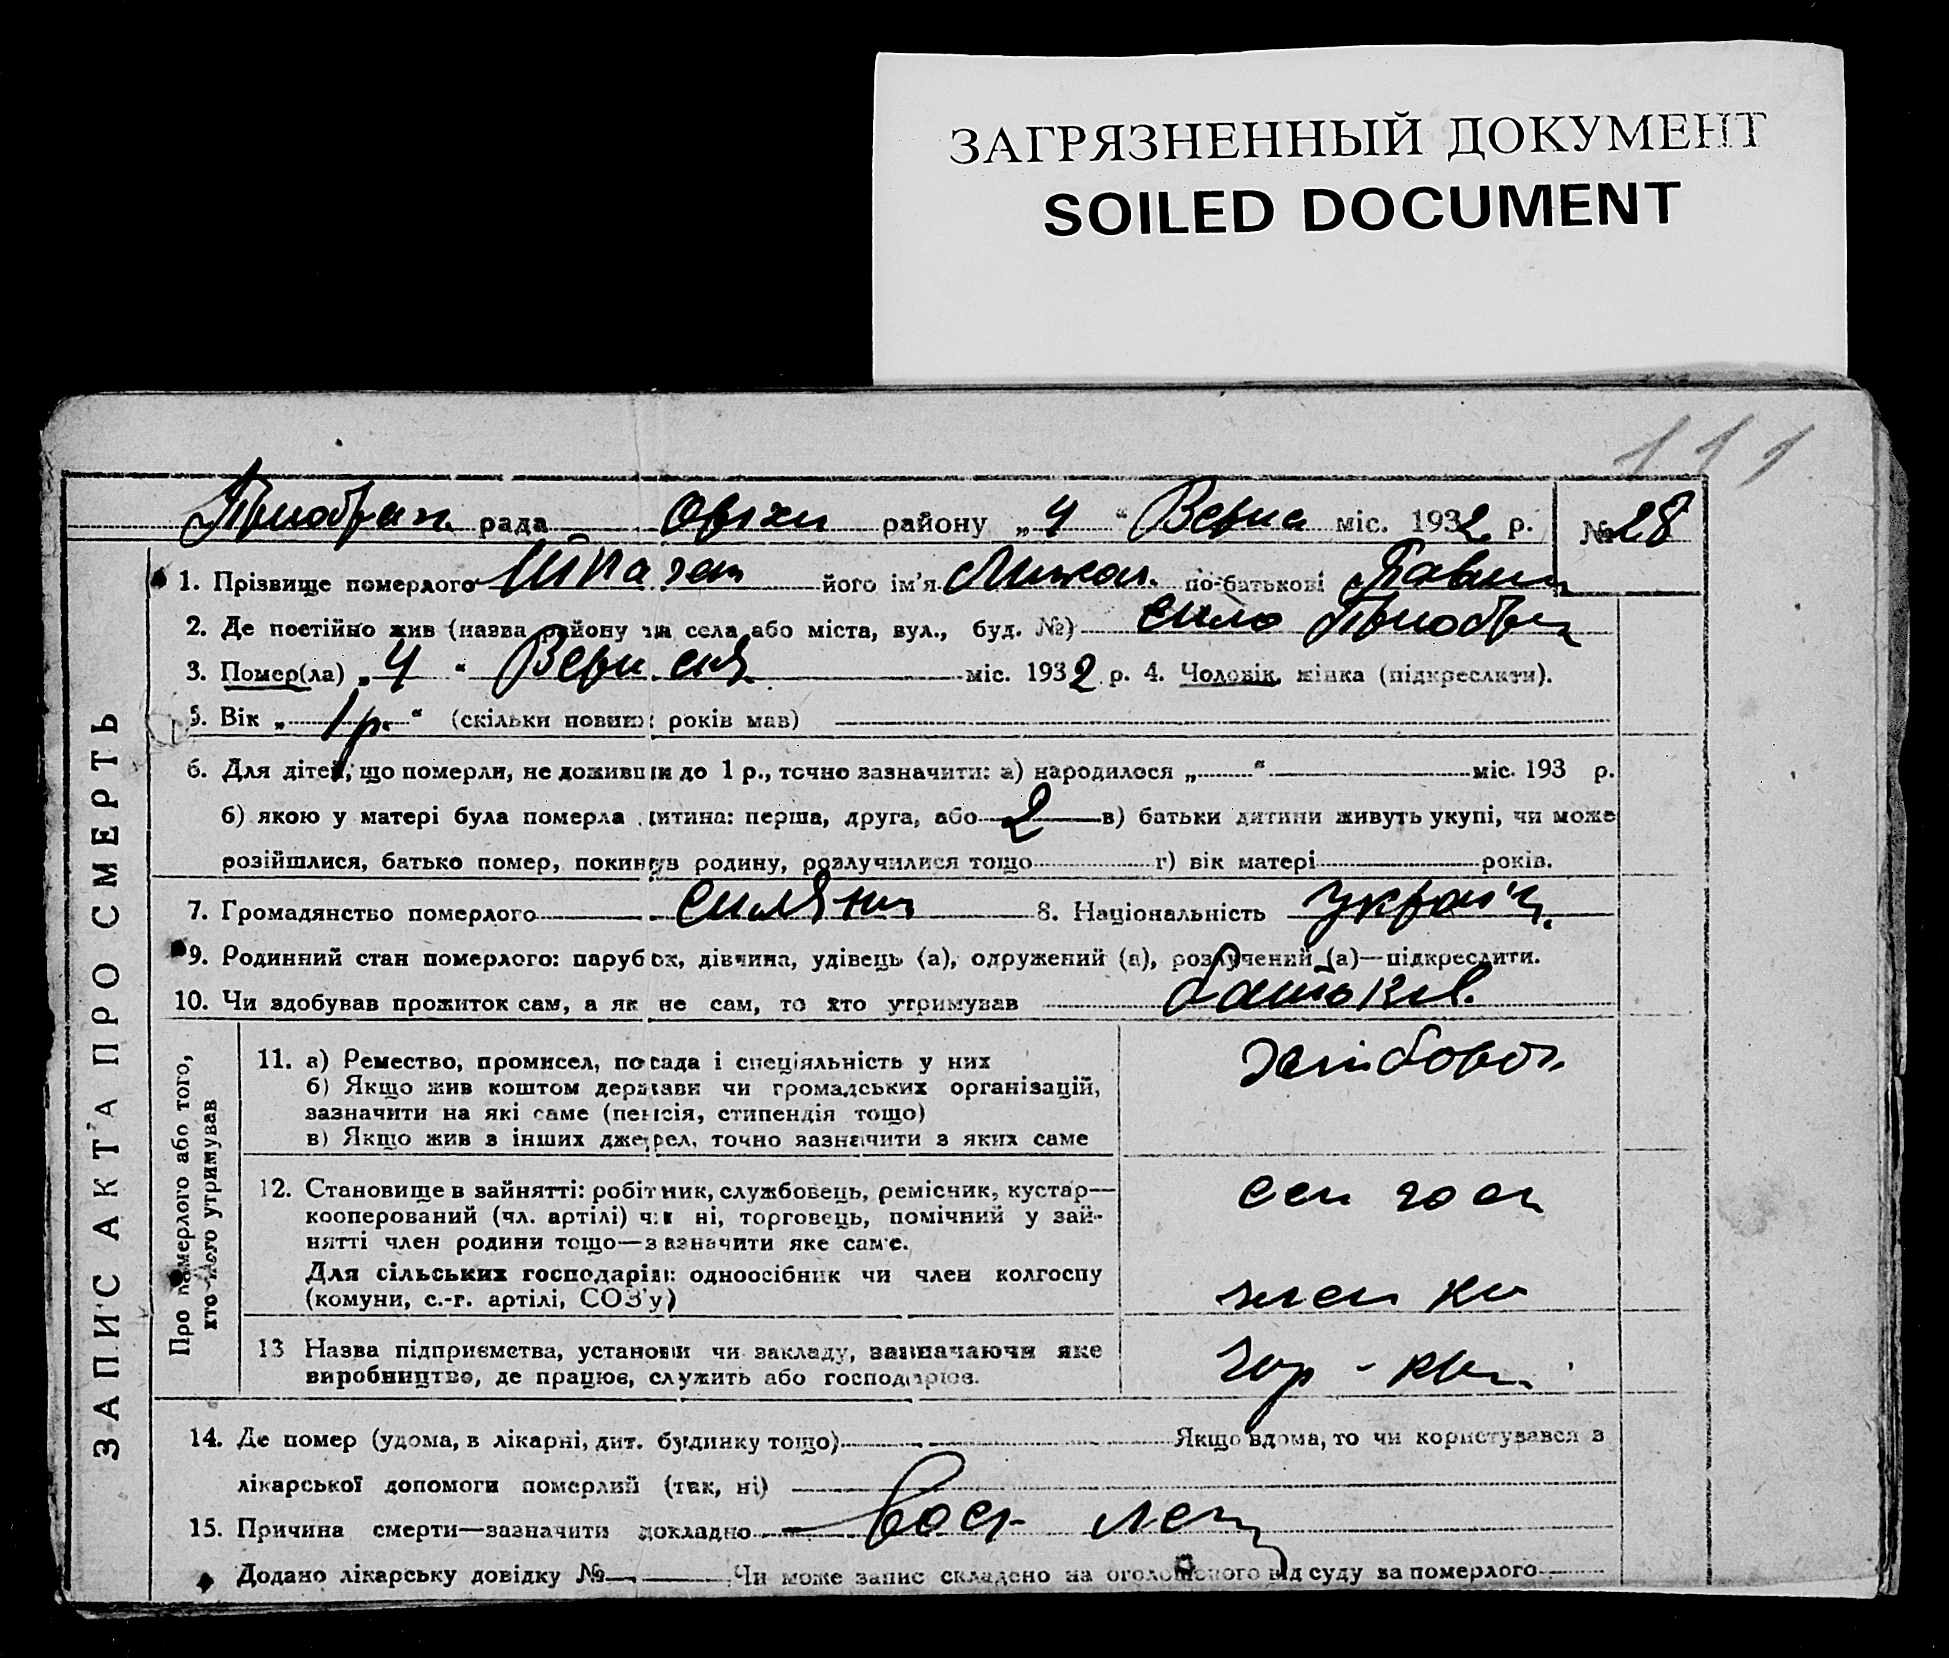 ЗАГРЯЗНЕННЫЙ ДОКУМЕНТ
SOILED DOCUMENT
111
рада района „4“ Верис міс. 1932 р. № 28
1. Прізвище померлого його ім'я Микол. по-батькові Павли
2. Де постійно жив (назва району та села або міста, вул., буд. №) село
3. Помер(ла) „4“ Верисня міс. 1932 р. 4. Чоловік, жінка (підкреслити).
5. Вік „1 р.“ (скільки новних років мав)
6. Для дітей, що померли, не доживши до 1 р., точно зазначити: а) народилося „ “ міс. 193 р.
б) якою у матері була померла дитина: перша, друга, або 2 в) батьки дитини живуть укупі, чи може
розійшлися, батько помер, покинув родину, розлучилися тощо г) вік матері років.
7. Громадянство померлого селянин 8. Національність україн.
9. Родинний стан померлого: парубок, дівчина, удівець (а), одружений (а), розлучений (а)—підкреслити.
10. Чи здобував прожиток сам, а як не сам, то хто утримував батьків.
ЗАПИС АКТА ПРО СМЕРТЬ
Про померлого або того,
хто його утримував
11. а) Ремество, промисел, посада і спеціяльність у них хлібороб
б) Якщо жив коштом держави чи громадських організацій,
зазначити на які саме (пенсія, стипендія тощо)
в) Якщо жив з інших джерел, точно зазначити з яких саме
12. Становище в зайнятті: робітник, службовець, ремісник, кустар—
кооперований (чл. артілі) чи ні, торговець, помічний у зай-
нятті член родини тощо—зазначити яке саме.
Для сільських господарів: одноосібник чи член колгоспу
(комуни, с.-г. артілі, СОЗ'у) член ко
13 Назва підприємства, установи чи закладу, зазначаючи яке
виробництво, де працює, служить або господарює.
14. Де помер (удома, в лікарні, дит. будинку тощо) Якщо вдома, то чи користувався з
лікарської допомоги померлий (так, ні)
15. Причина смерти—зазначити докладно
Додано лікарську довідку № Чи може запис складено на оголошеного від суду за померлого